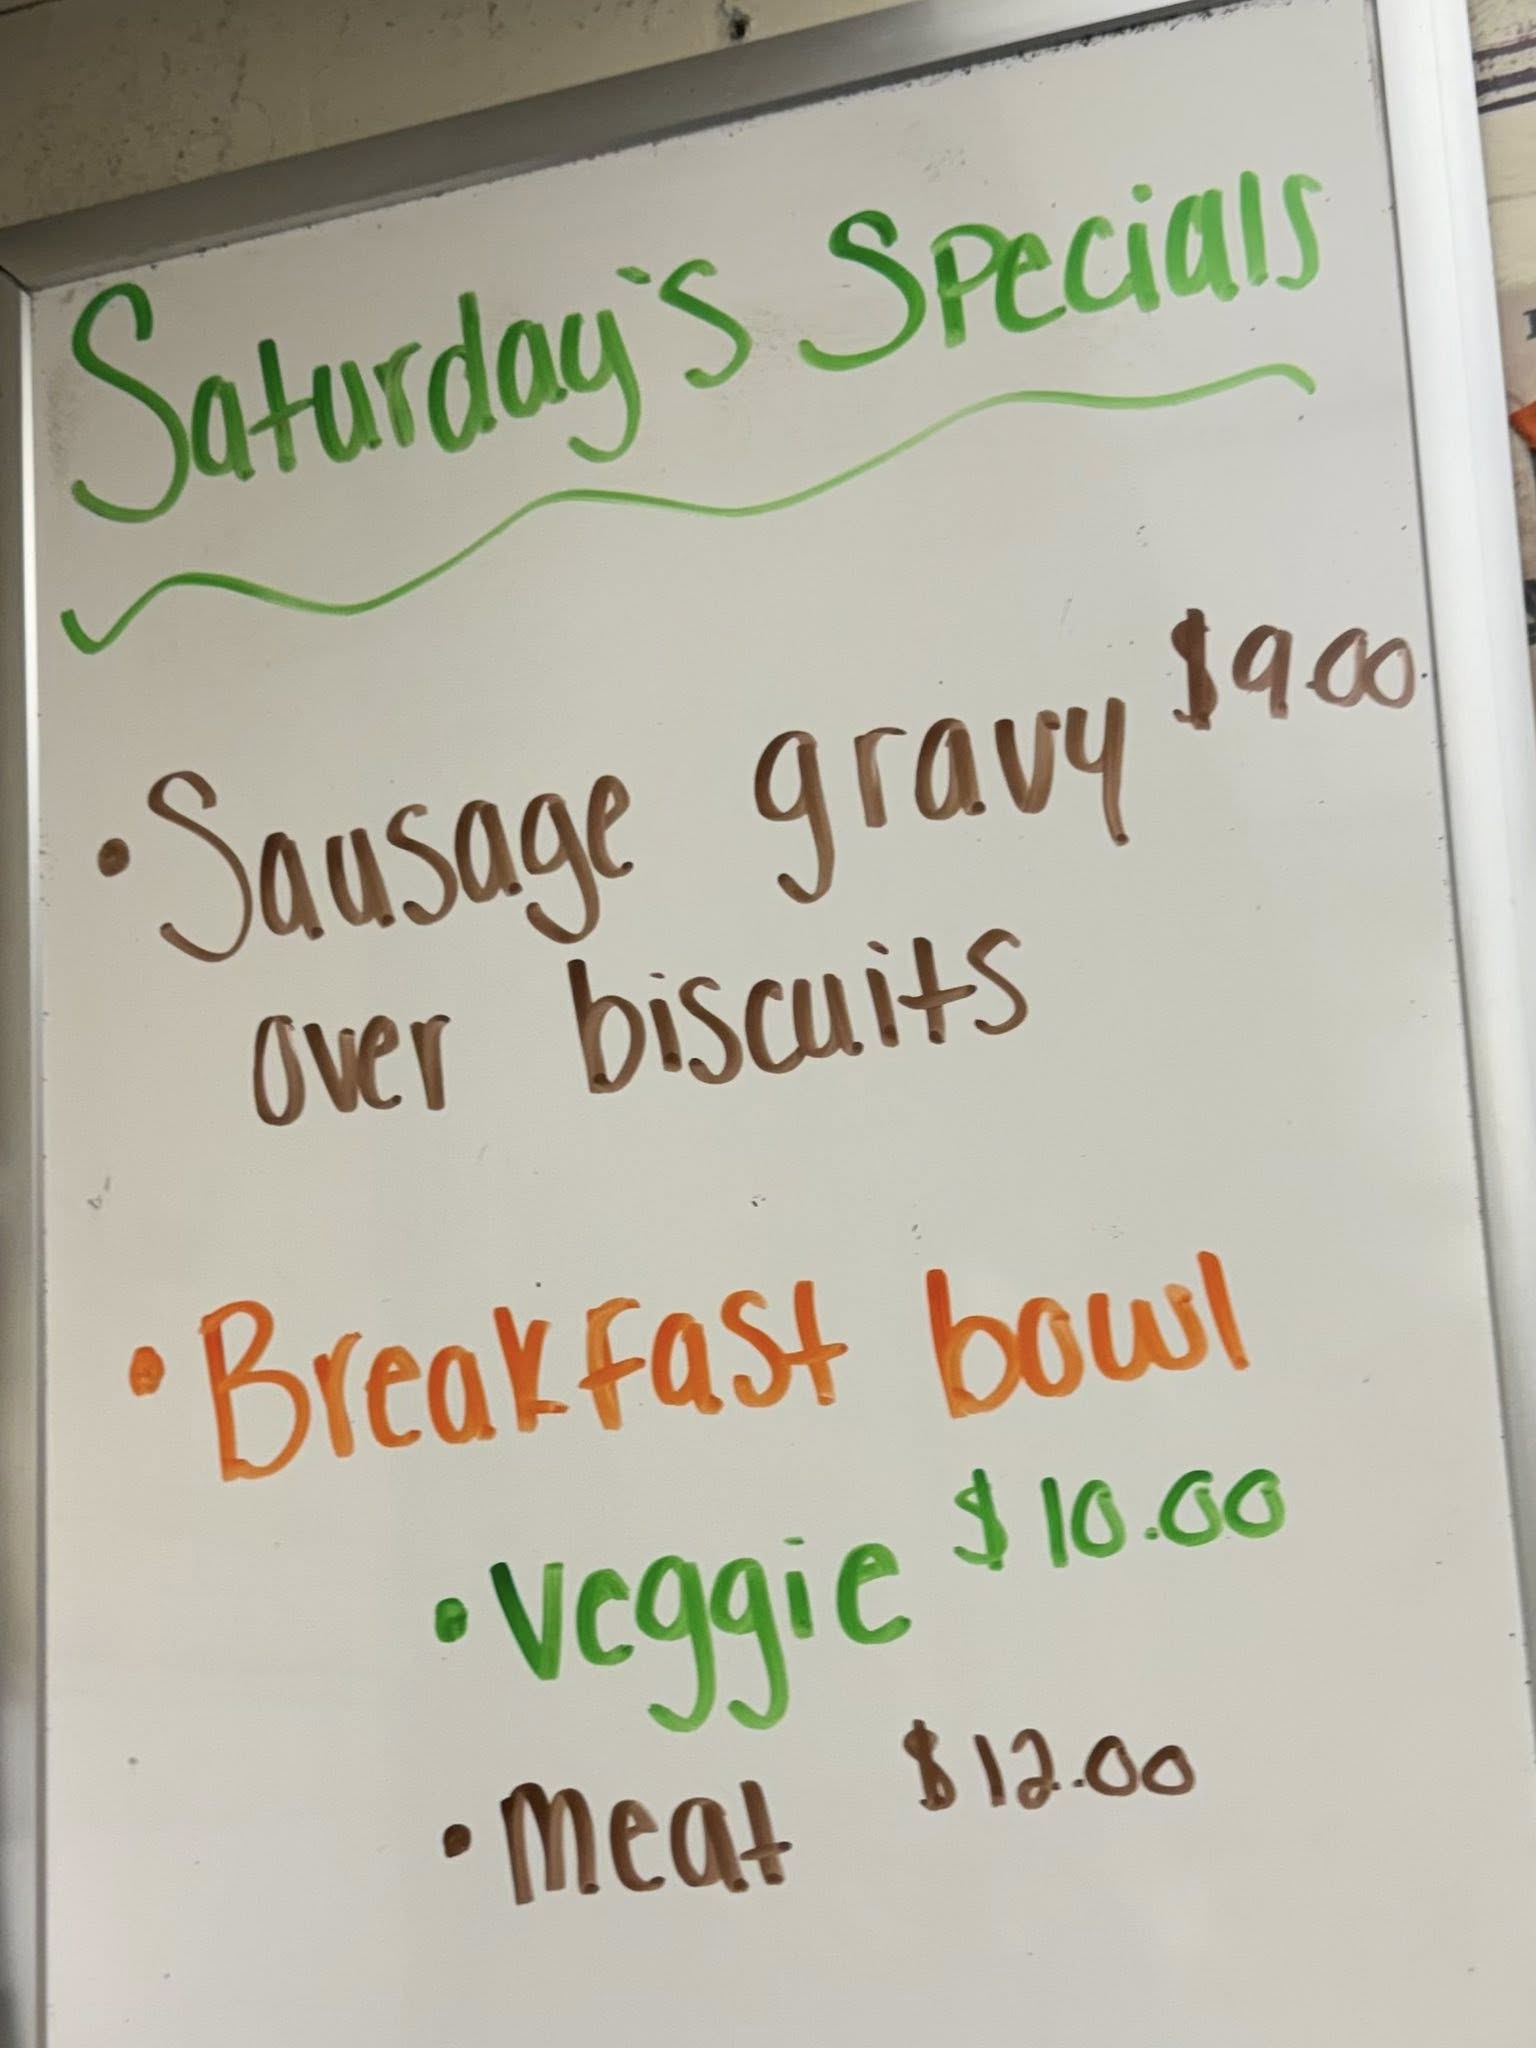 Saturday's Specials
• Sausage gravy $9.00
over biscuits
• Breakfast bowl
• Veggie $10.00
• Meat $12.00